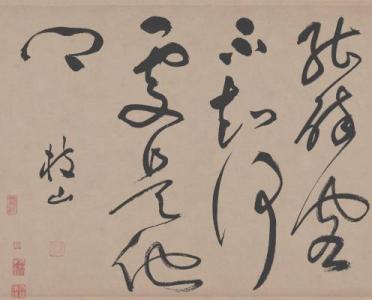 能醉客
不知何
處是他
鄉
枝山